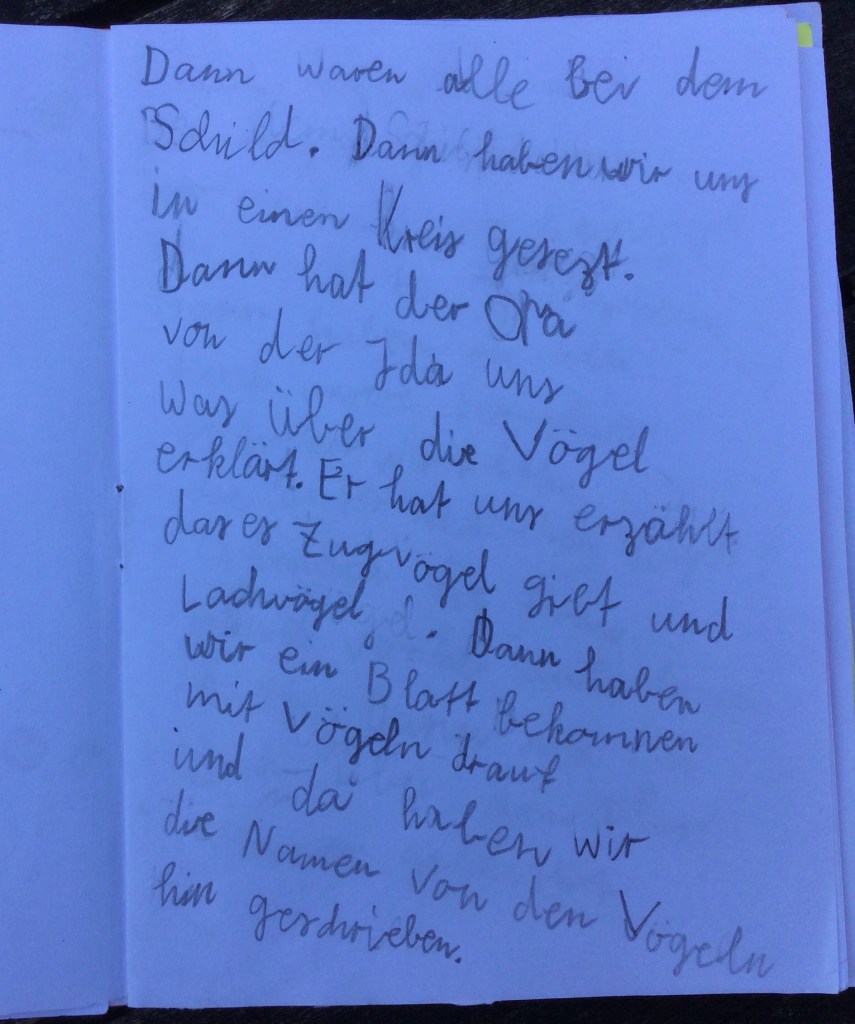 Dann waren alle bei dem
Schild. Dann haben wir uns
in einen Kreis gesezt.
Dann hat der Opa
von der Ida uns
was über die Vögel
erklärt. Er hat uns erzählt
das es Zugvögel gibt und
Lachvögel. Dann haben
wir ein Blatt bekommen
mit Vögeln drauf
und da haben wir
die Namen von den Vögeln
hin geschrieben.